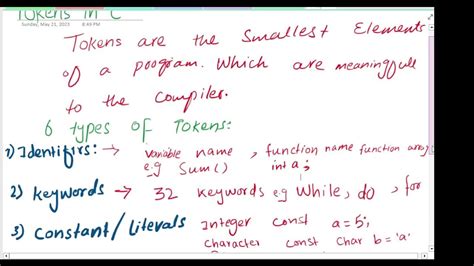 Tokens in C
Sunday, May 21, 2023 8:49 PM
Tokens are the smallest Elements
of a poogram. Which are meaningfull
to the Compiler.
6 types of Tokens:
1) Identifirs: → variable name , function name function array
e.g Sum() int a;
2) keywords → 32 keywords eg While, do , for
3) Constant/Literals Integer const a=5;
Character const char b='a'